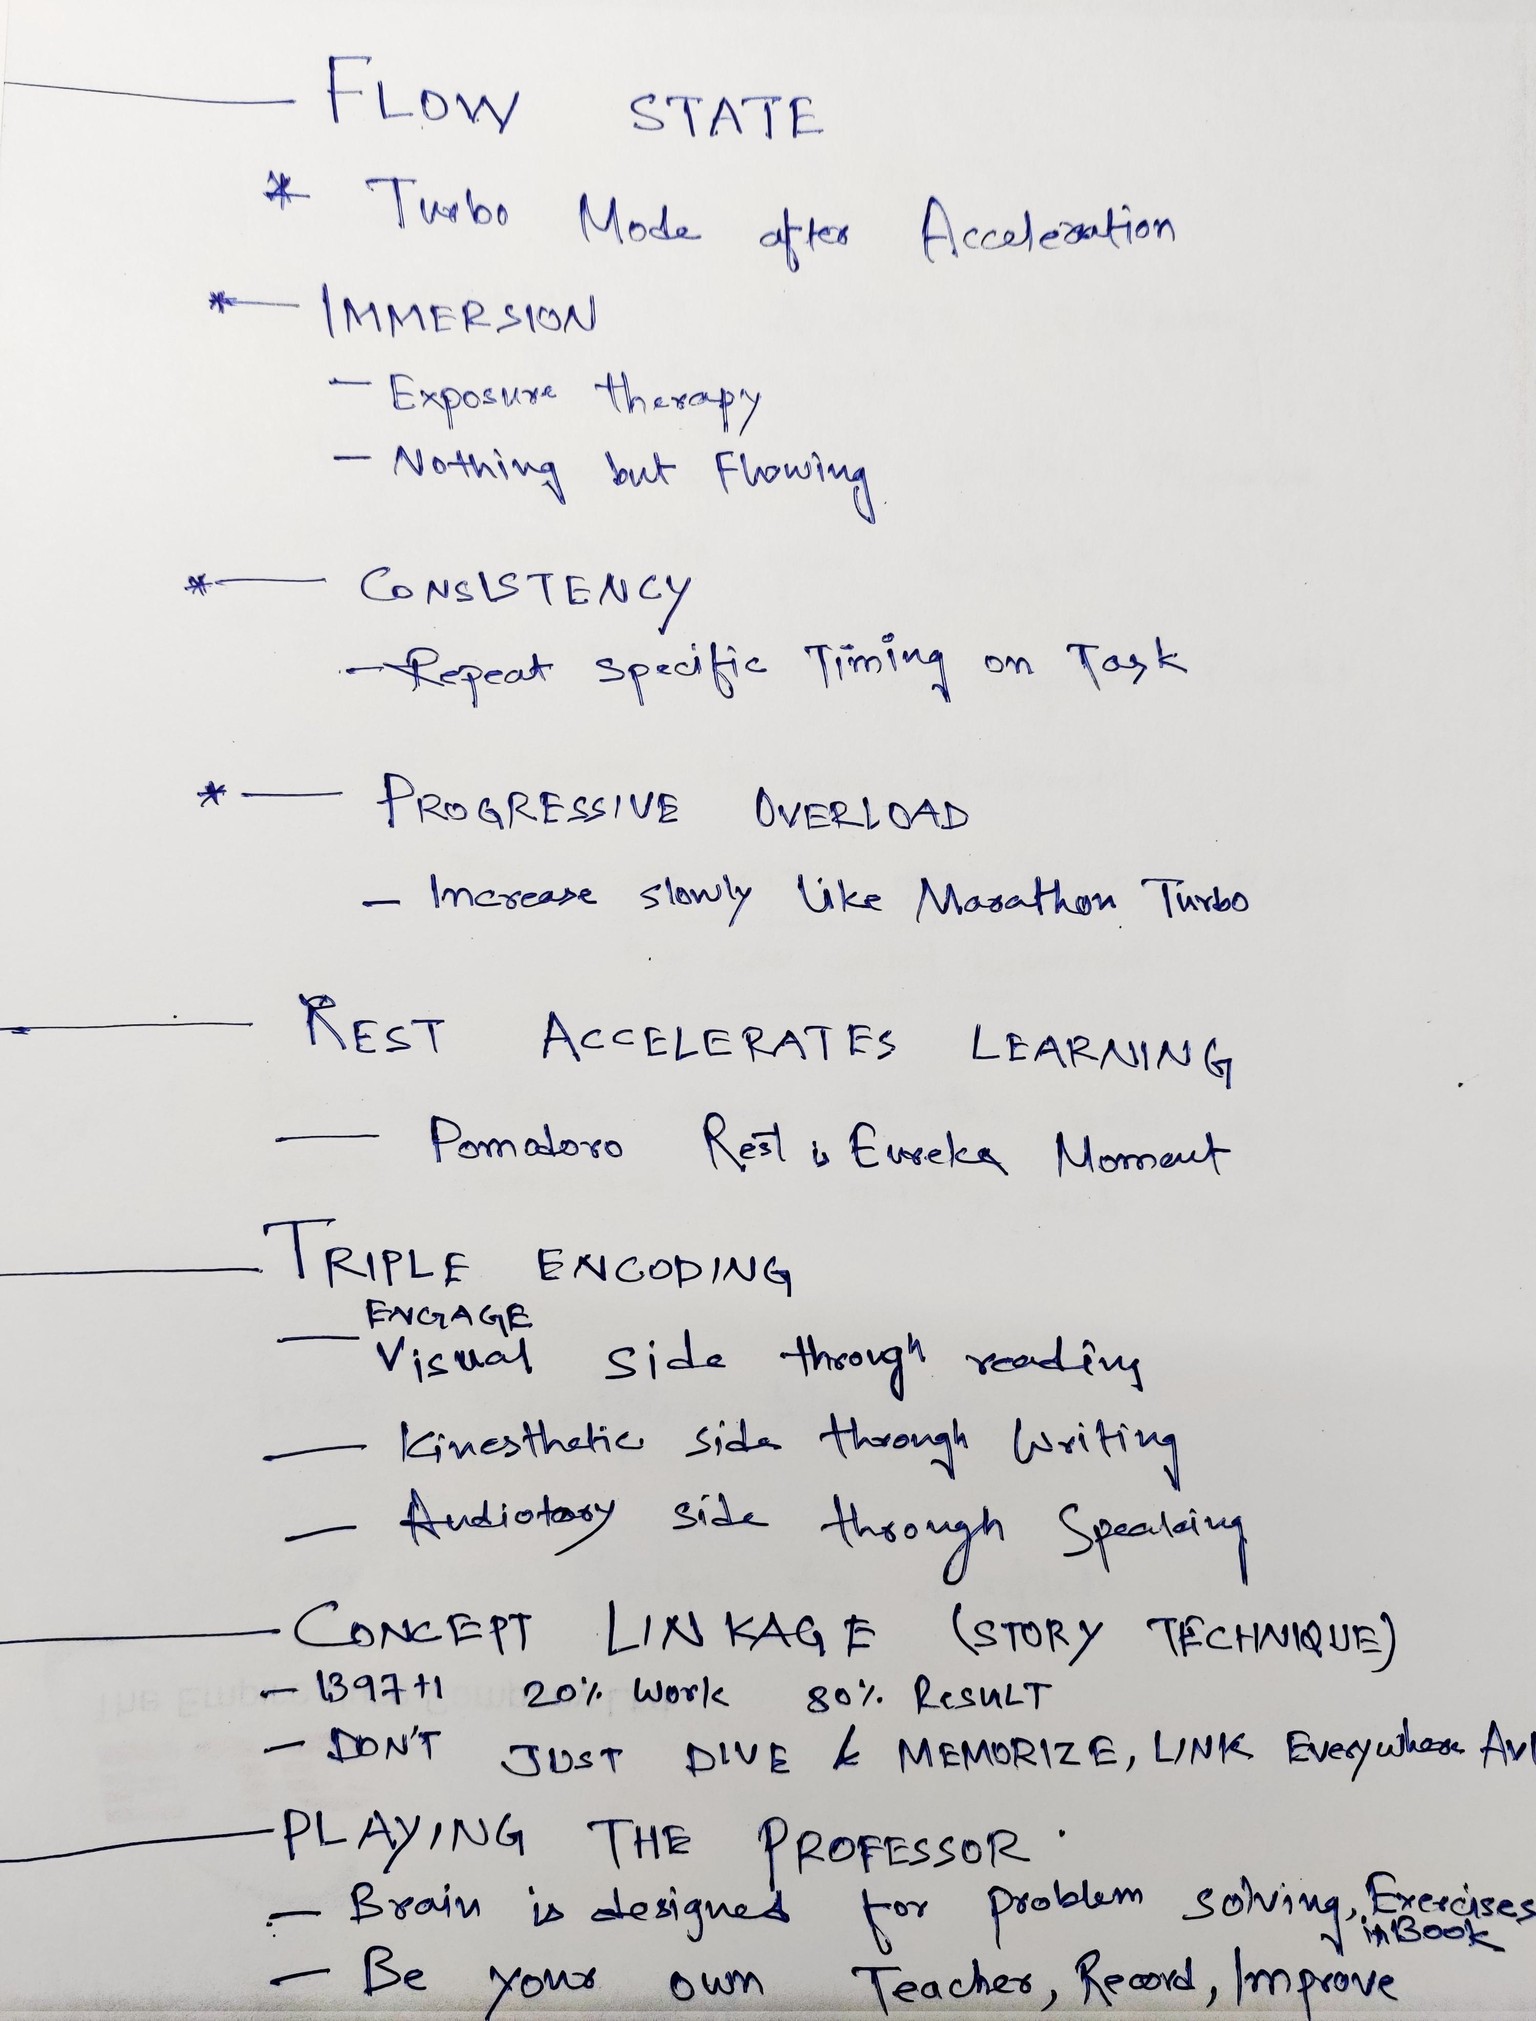 FLOW STATE
* Turbo Mode after Acceleration
* — IMMERSION
- Exposure therapy
- Nothing but Flowing
* — CONSISTENCY
- Repeat specific Timing on Task
* — PROGRESSIVE OVERLOAD
- Increase slowly like Marathon Turbo
REST ACCELERATES LEARNING
— Pomodoro Rest is Eureka Moment
TRIPLE ENCODING
ENGAGE
— Visual side through reading
— Kinesthetic side through Writing
— Audiotory side through Speaking
CONCEPT LINKAGE (STORY TECHNIQUE)
- 20% Work 80% RESULT
- DON'T JUST DIVE & MEMORIZE, LINK Everywhere
PLAYING THE PROFESSOR
- Brain is designed for problem solving, Exercises
in Book
- Be your own Teacher, Record, Improve